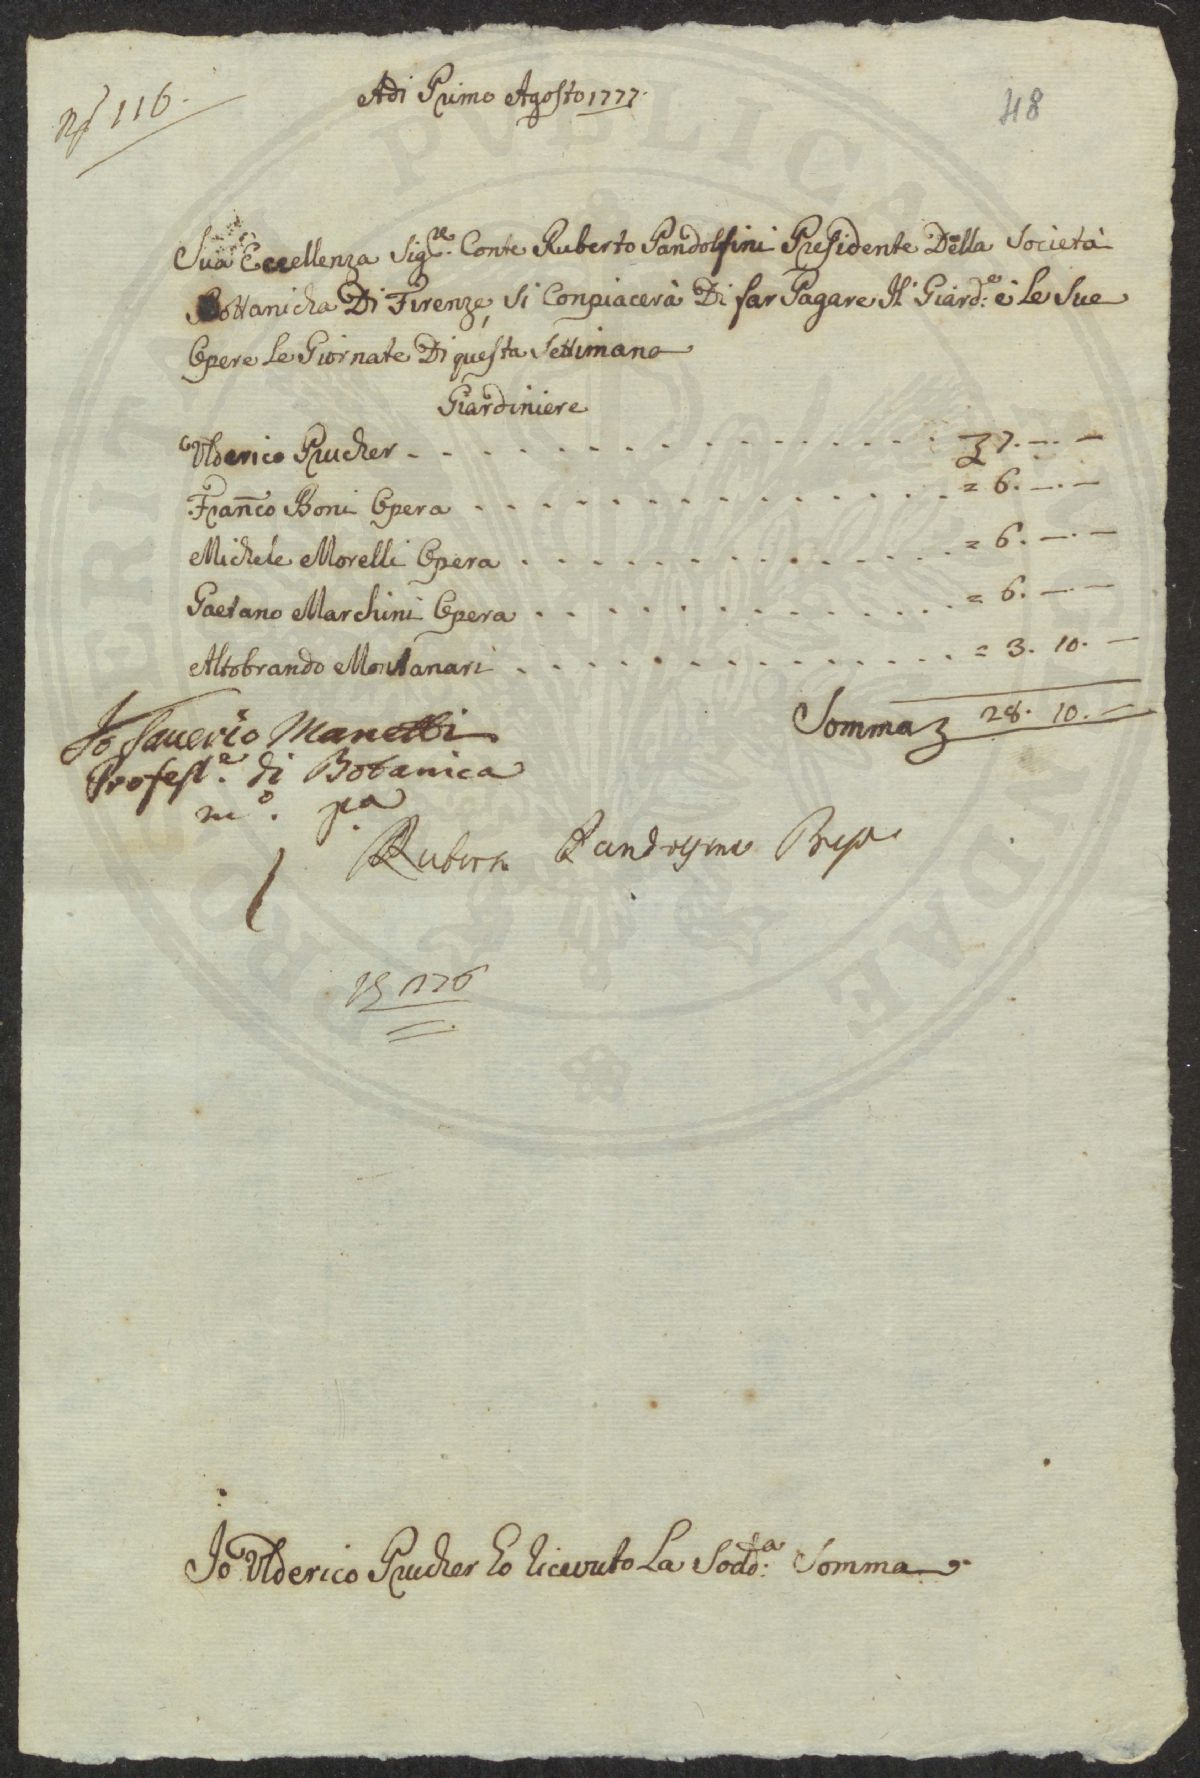 N° 116.
Adi Primo Agosto 1777.
48
Sua Eccellenza Sig.re Conte Ruberto Pandolfini Presidente Della Società
Bottanicha Di Firenze, si Conpiacerà Di far Pagare Il Giard.e è Le Sue
Opere Le Giornate Di questa Settimana
Giardiniere
Ulderico Prucher - - - - - - - - - - - - - - - 7. — . —
Franco Boni Opera - - - - - - - - - - - - - = 6. — . —
Michele Morelli Opera - - - - - - - - - - - - = 6. — . —
Gaetano Marchini Opera - - - - - - - - - - - - = 6. — . —
Altobrando Montanari - - - - - - - - - - - - - = 3. 10. —
Somma 28. 10. —
Io Saverio Manetti
Profess.e di Botanica
m.o p.a
Ruberto Pandolfini Pres.
176
Io Ulderico Prucher ho ricevuto La Sodd.a Somma
PUBLICAE
PROSPERITATI